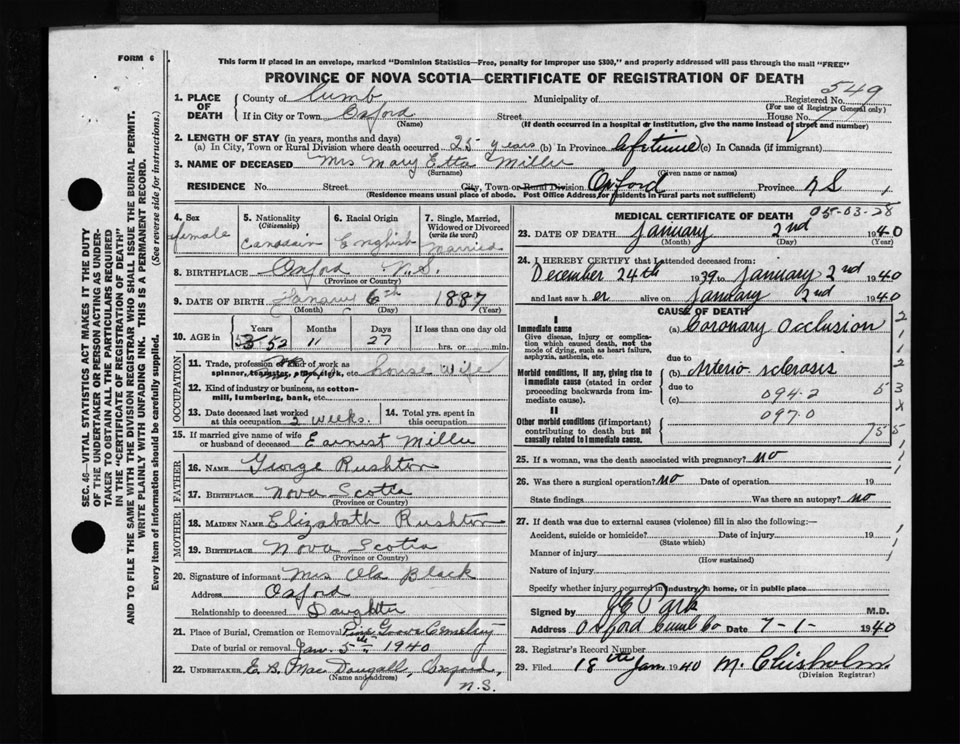 FORM 6
This form if placed in an envelope, marked "Dominion Statistics—Free, penalty for improper use $300," and properly addressed will pass through the mail "FREE"
PROVINCE OF NOVA SCOTIA—CERTIFICATE OF REGISTRATION OF DEATH
549
1. PLACE OF DEATH County of Cumb Municipality of Registered No.
(For use of Registrar General only)
If in City or Town Oxford Street House No.
(Name) (If death occurred in a hospital or institution, give the name instead of street and number)
2. LENGTH OF STAY (in years, months and days)
(a) In City, Town or Rural Division where death occurred 25 years (b) In Province lifetime (c) In Canada (if immigrant)
3. NAME OF DECEASED Mrs Mary Etta Miller
(Surname) (Given name or names)
RESIDENCE No. Street City, Town or Rural Division Oxford Province N S
(Residence means usual place of abode. Post Office Address for residents in rural parts not sufficient)
4. Sex female
5. Nationality (Citizenship) Canadain
6. Racial Origin English
7. Single, Married, Widowed or Divorced (write the word) married
8. BIRTHPLACE Oxford N.S.
(Province or County)
9. DATE OF BIRTH January 6th 1887
(Month) (Day) (Year)
10. AGE in Years Months Days If less than one day old
52 11 27 hrs. or min.
OCCUPATION
11. Trade, profession or kind of work as spinner, teamster, office clerk, etc. house wife
12. Kind of industry or business, as cotton-mill, lumbering, bank, etc.
13. Date deceased last worked at this occupation 2 weeks.
14. Total yrs. spent in this occupation
15. If married give name of wife or husband of deceased Earnest Miller
FATHER
16. Name George Rushton
17. Birthplace Nova Scotia
(Province or Country)
MOTHER
18. Maiden Name Elizabath Rushton
19. Birthplace Nova Scotia
(Province or Country)
20. Signature of informant Mrs Ola Black
Address Oxford
Relationship to deceased Daughter
21. Place of Burial, Cremation or Removal Pine Grove Cemetery
Date of burial or removal Jan. 5th 1940
22. UNDERTAKER E. B. MacDougall, Oxford, N.S.
(Name and address)
MEDICAL CERTIFICATE OF DEATH 05-03-28
23. DATE OF DEATH January 2nd 1940
(Month) (Day) (Year)
24. I HEREBY CERTIFY that I attended deceased from:
December 24th 1939 to January 2nd 1940
and last saw her alive on January 2nd 1940
CAUSE OF DEATH
I
Immediate cause (a) Coronary Occlusion
Give disease, injury or complication which caused death, not the mode of dying, such as heart failure, asphyxia, asthenia, etc.
due to
Morbid conditions, if any, giving rise to immediate cause (stated in order proceeding backwards from immediate cause). (b) Arterio sclerosis
due to 094.2
(c)
097.0
II
Other morbid conditions (if important) contributing to death but not causally related to immediate cause.
25. If a woman, was the death associated with pregnancy? no
26. Was there a surgical operation? no Date of operation 19
State findings Was there an autopsy? no
27. If death was due to external causes (violence) fill in also the following:—
Accident, suicide or homicide? Date of injury 19
(State which)
Manner of injury
(How sustained)
Nature of injury
Specify whether injury occurred in industry, in home, or in public place
Signed by J E Park M.D.
Address Oxford Cumb Co Date 7-1- 1940
28. Registrar's Record Number
29. Filed 18th Jan 1940 M. Chisholm
(Division Registrar)
SEC. 46—VITAL STATISTICS ACT MAKES IT THE DUTY
OF THE UNDERTAKER OR PERSON ACTING AS UNDER-
TAKER TO OBTAIN ALL THE PARTICULARS REQUIRED
IN THE "CERTIFICATE OF REGISTRATION OF DEATH"
AND TO FILE THE SAME WITH THE DIVISION REGISTRAR WHO SHALL ISSUE THE BURIAL PERMIT.
WRITE PLAINLY WITH UNFADING INK. THIS IS A PERMANENT RECORD.
Every item of information should be carefully supplied. (See reverse side for instructions.)